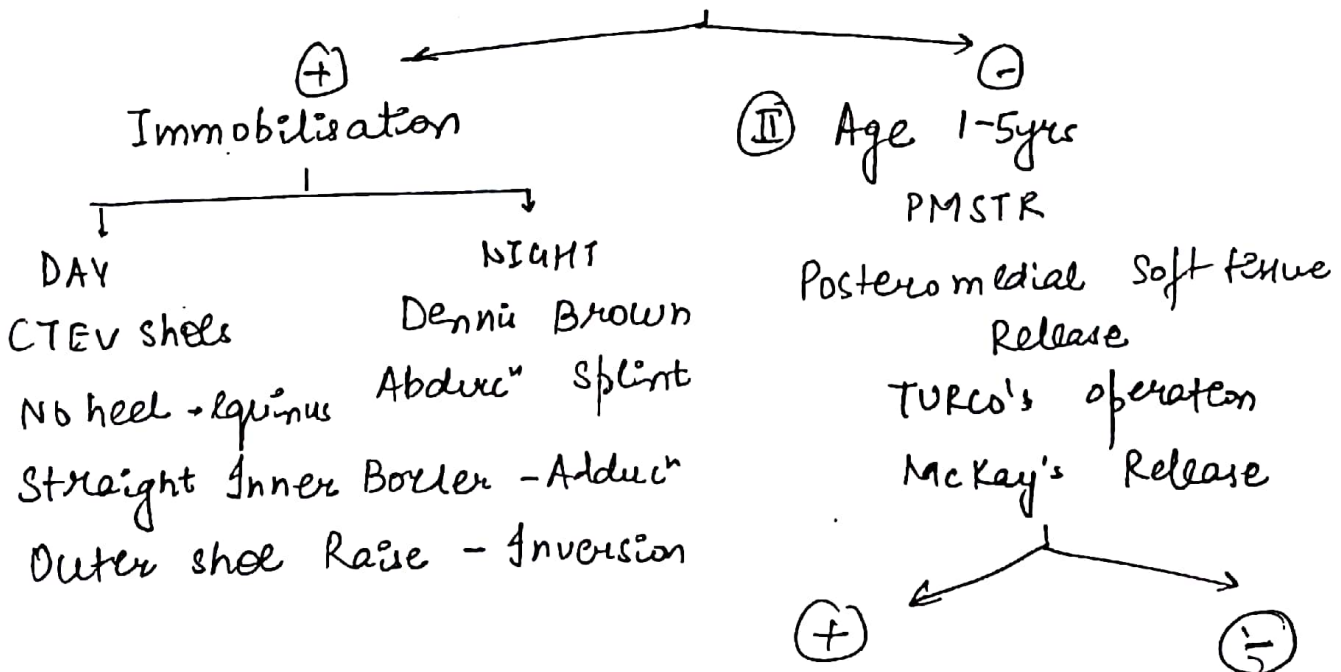 (+)
Immobilisation
DAY
CTEV shoes
No heel → equinus
Straight Inner Border - Adducⁿ
Outer shoe Raise - Inversion
NIGHT
Dennis Brown
Abducⁿ Splint
(-)
(II) Age 1-5yrs
PMSTR
Posteromedial Soft tissue
Release
TURCO's operation
McKay's Release
(+)
(-)